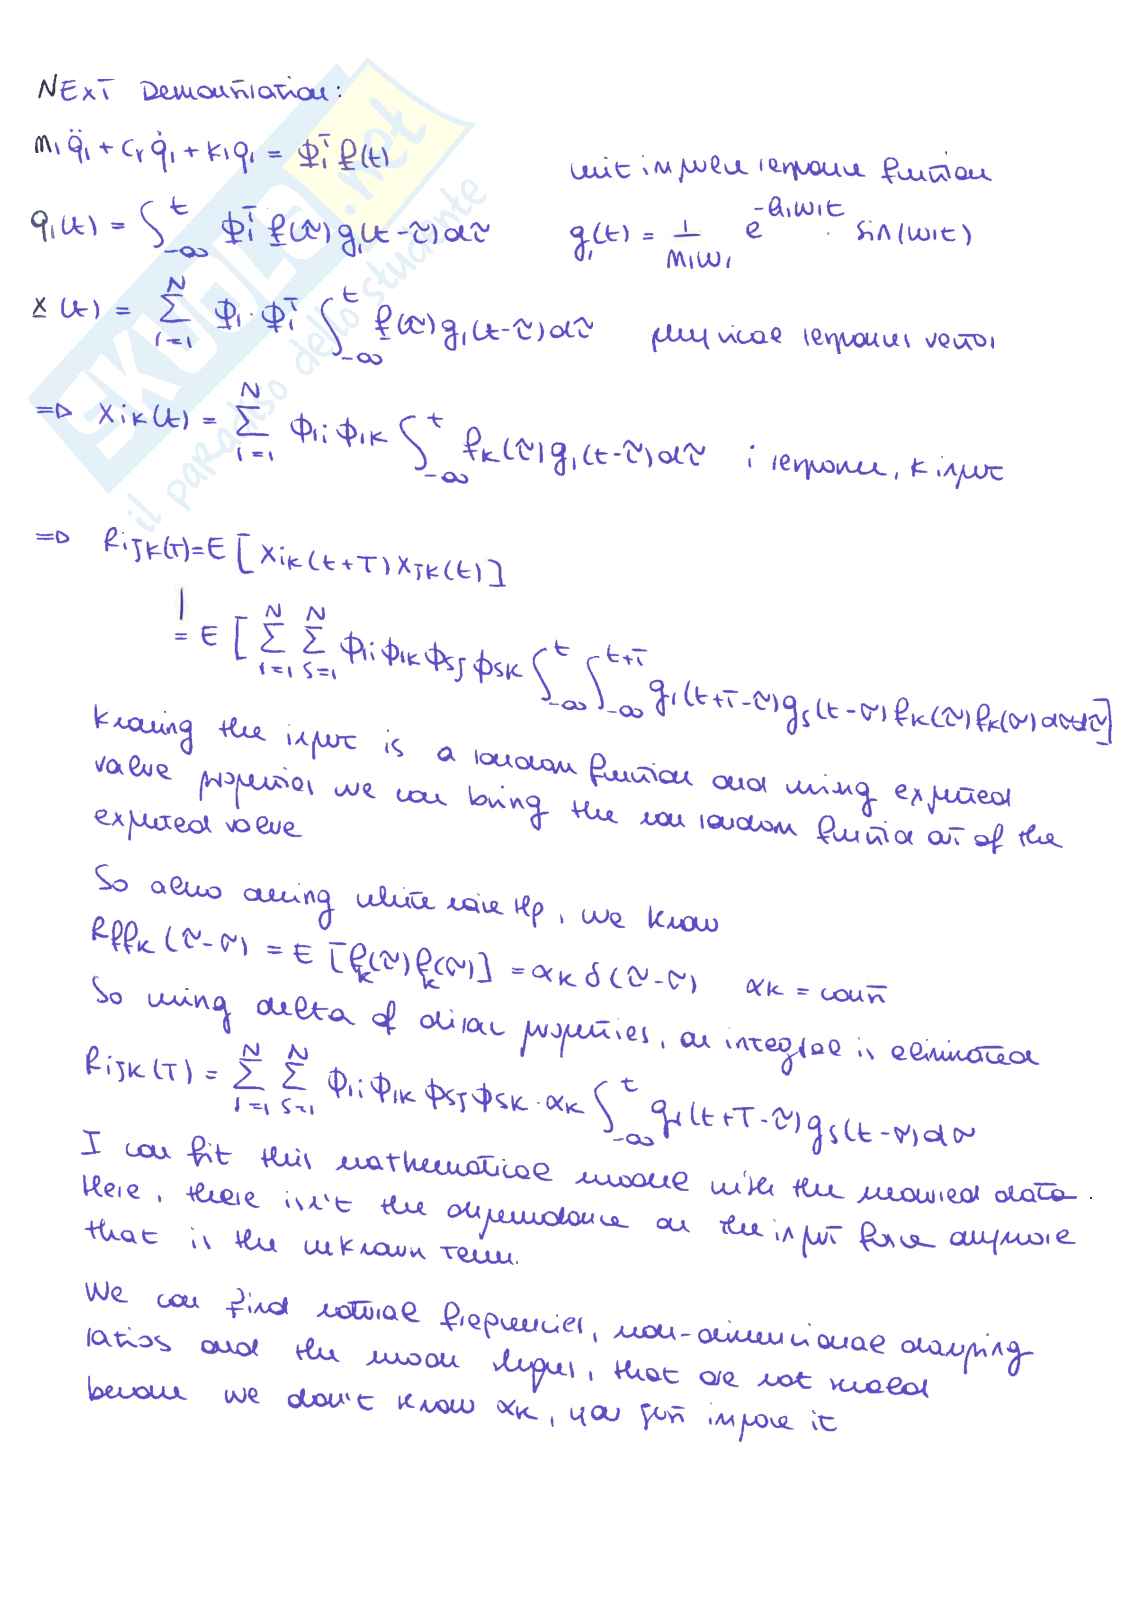 NExT Demonstration:
m₁q̈₁ + cᵣq̇₁ + k₁q₁ = Φ₁ᵀ f(t)
unit impulse response function
q₁(t) = ∫_{-∞}^{t} Φ₁ᵀ f(τ) g₁(t-τ) dτ
g₁(t) = 1/(m₁w₁) e^{-h₁w₁t} · sin(w₁t)
x(t) = Σ_{i=1}^{N} Φ₁ · Φ₁ᵀ ∫_{-∞}^{t} f(τ) g₁(t-τ) dτ physical responses vector
⇒ xik(t) = Σ_{i=1}^{N} ϕ₁i ϕ₁k ∫_{-∞}^{t} fk(τ) g₁(t-τ) dτ i response, k input
⇒ Rijk(T) = E [xik(t+T) xjk(t)]
= E [Σ_{i=1}^{N} Σ_{s=1}^{N} ϕ₁i ϕ₁k ϕsj ϕsk ∫_{-∞}^{t} ∫_{-∞}^{t+T} g₁(t+T-τ) gs(t-σ) fk(τ) fk(σ) dσdτ]
Knowing the input is a random function and using expected
value properties we can bring the non random function out of the
expected value
So also using white noise Hp, we know
Rffk(τ-σ) = E [fk(τ) fk(σ)] = αk δ(τ-σ) αk = const
So using delta of dirac properties, an integral is eliminated
Rijk(T) = Σ_{i=1}^{N} Σ_{s=1}^{N} ϕ₁i ϕ₁k ϕsj ϕsk · αk ∫_{-∞}^{t} g₁(t+T-τ) gs(t-σ) dσ
I can fit this mathematical model with the measured data.
Here, there isn't the dependance on the input force anymore
that is the unknown term.
We can find natural frequencies, non-dimensional damping
ratios and the mode shapes, that are not scaled
because we don't know αk, you just impose it
SKUOLA.net
il paradiso dello studente